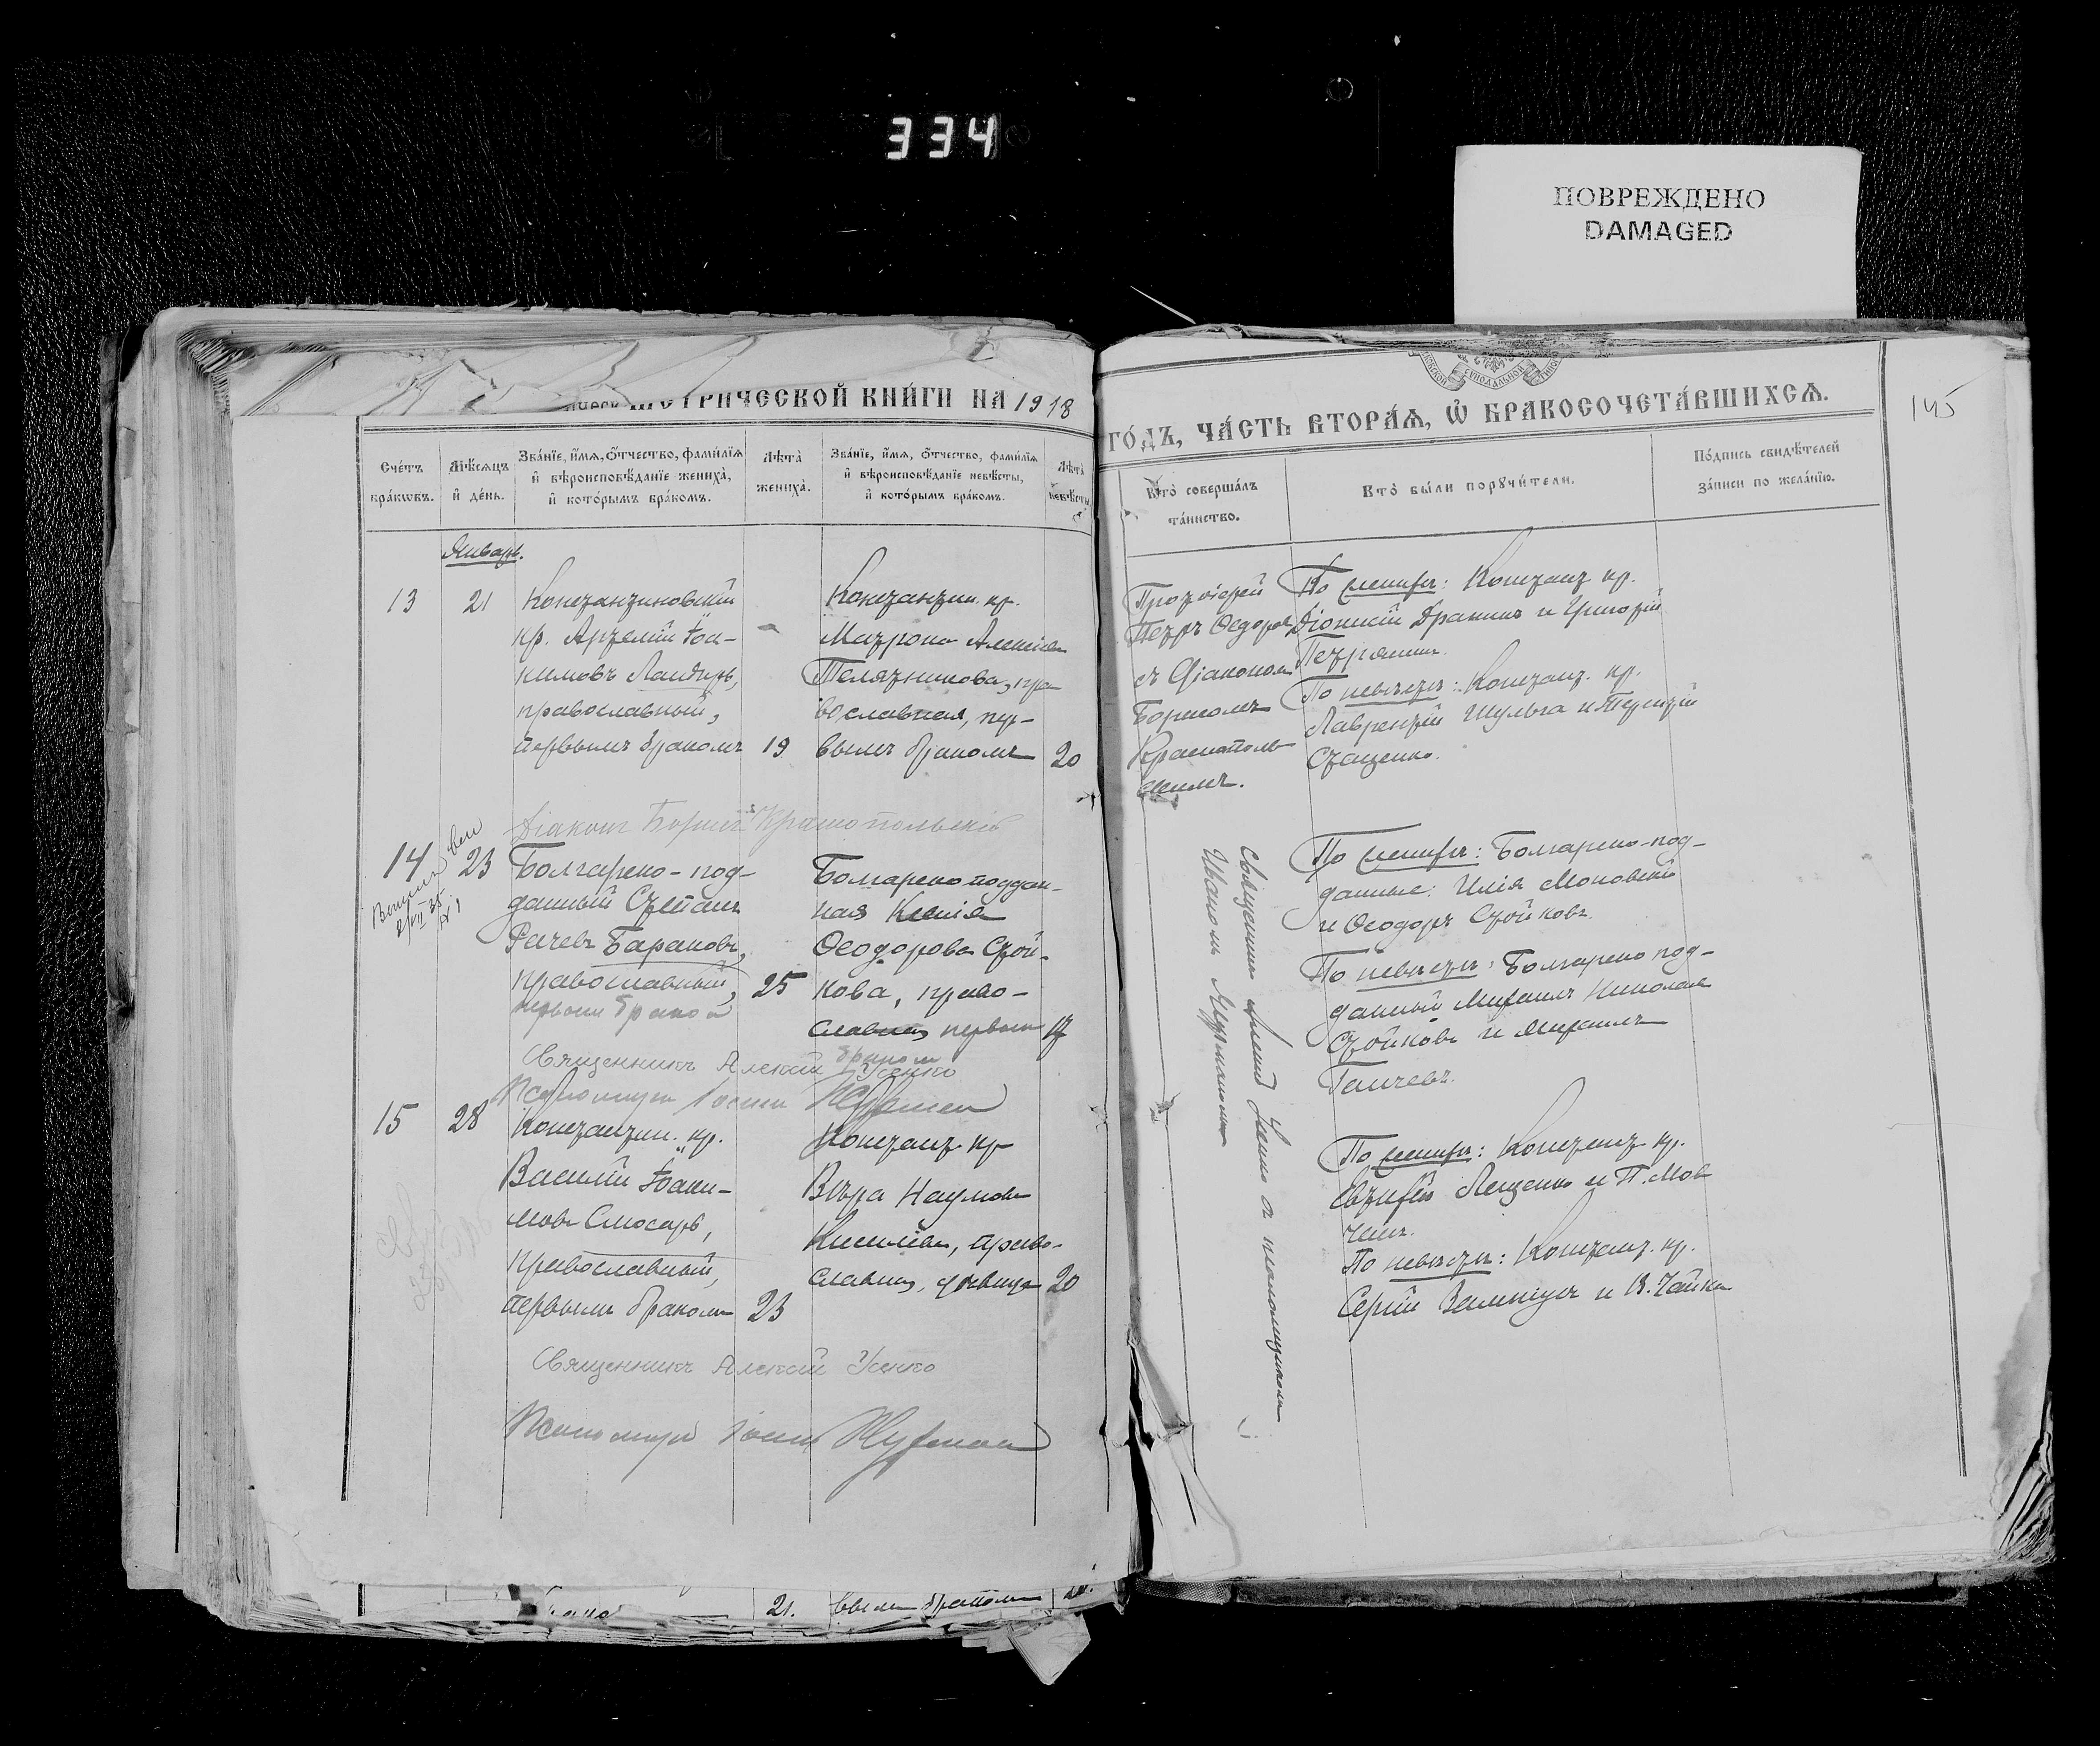 334
ПОВРЕЖДЕНО
DAMAGED
МЕТРИЧЕСКОЙ КНИ́ГИ НА 1918
ГО́ДЪ, ЧА́СТЬ ВТОРА́Ѧ, Ѽ БРАКОСОЧЕТА́ВШИХСѦ.
145
Сче́тъ бра́кѡвъ.
Мѣ́сѧцъ и҆ де́нь.
Зва́нїе, и҆́мѧ, ѻ҆́тчество, фами́лїѧ и҆ вѣроисповѣ́данїе жениха̀, и҆ кото́рымъ бра́комъ.
Лѣ́та̀ жениха̀.
Зва́нїе, и҆́мѧ, ѻ҆́тчество, фами́лїѧ и҆ вѣроисповѣ́данїе невѣ́сты, и҆ кото́рымъ бра́комъ.
Лѣ́та̀ невѣ́сты
Кто̀ соверша́лъ та́инство.
Кто̀ бы́ли порꙋчи́тели.
По́дпись свидѣ́телей за́писи по жела́нїю.
Январь.
13
21
Константиновскій
кр. Артемій Іоа-
кимовъ
православный,
первымъ бракомъ
19
Константин. кр.
Матрона Алексіева
Телятникова, пра
вославная, пер-
вымъ бракомъ
20
Протоіерей
Петръ Ѳедоров
съ діакономъ
Борисомъ
Краснополь
скимъ.
По женихѣ: Констант. кр.
Діонисій Драникъ и Григорій
По невѣстѣ: Констант. кр.
Лаврентій Шульга и Терентій
Стаценко.
Діаконъ Борисъ Краснопольскій
14
23
Болгарско-под-
данный Стефанъ
Рачевъ Барановъ,
православный,
первымъ бракомъ
25
Болгарско поддан-
ная Ксенія
Ѳеодорова Стой-
кова, право-
славная, первым
бракомъ
17
Священникъ Алексій Усенко съ псаломщикомъ
По женихѣ: Болгарско-под-
данные: Илія Моновскій
и Ѳеодоръ Стойковъ.
По невѣстѣ: Болгарско под-
данный Михаилъ Николаев
Стойковъ и Михаилъ
Ганчевъ.
Священникъ Алексій Усенко
15
28
Константин. кр.
Василій Іоаки-
мовъ Слюсарь,
православный,
первымъ бракомъ
23
Констант. кр
Вѣра Наумова
Киселёва, право-
славная, дѣвица
20
По женихѣ: Констант. кр.
Евѳимій Лященко и П. Мов
чанъ.
По невѣстѣ: Констант. кр.
Сергій и В. Чайка
Священникъ Алексій Усенко
Псаломщикъ Іоаннъ
21.
вымъ бракомъ